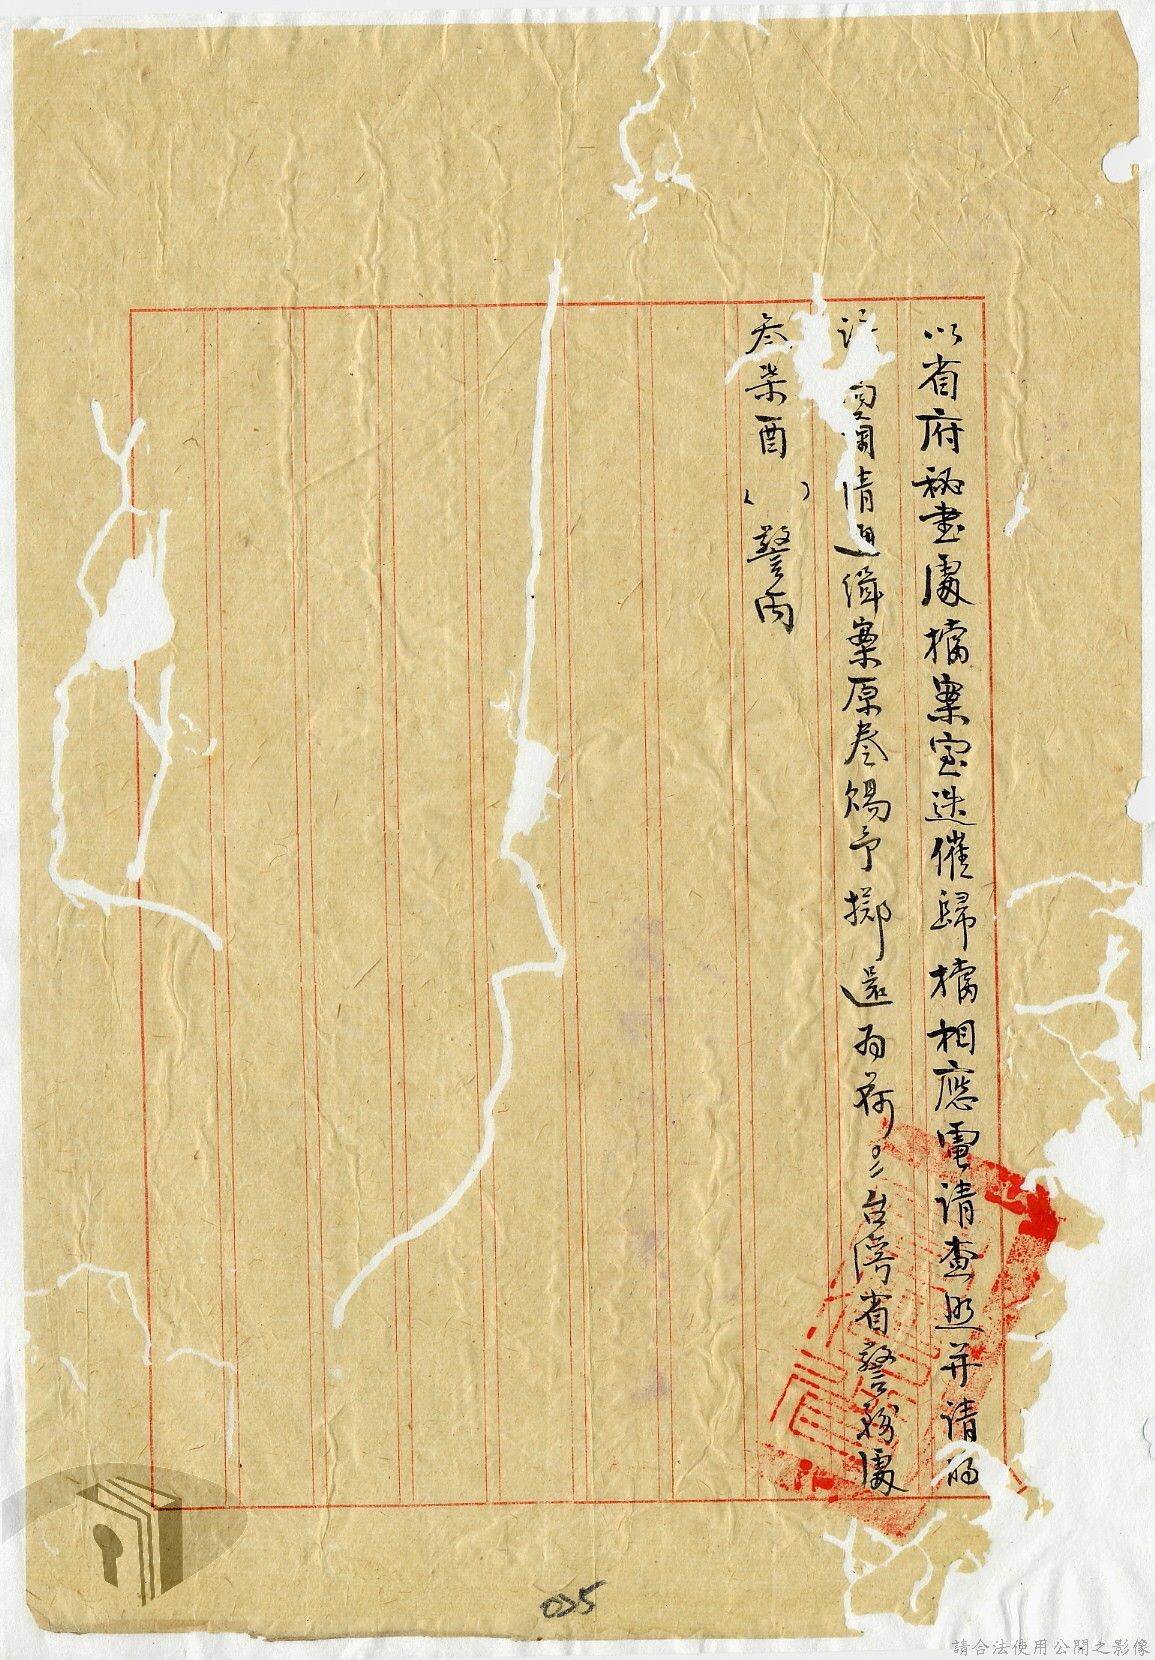 以省府秘書處檔案室迭催歸檔相應電請查照并請將
蘭倩通緝案原卷賜予擲還為荷台湾省警務處
叁柒酉（ ）警丙
025
請合法使用公開之影像